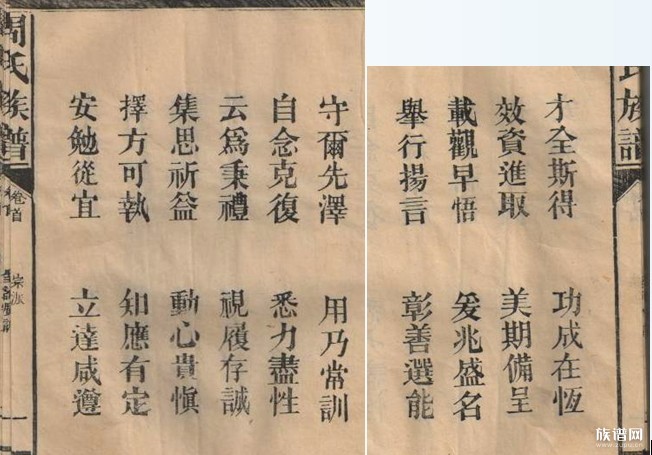 氏族譜
才全斯得 功成在恆
效資進取 美期備呈
載觀早悟 爰兆盛名
舉行揚言 彰善選能
守爾先澤 用乃常訓
自念克復 悉力盡性
云爲秉禮 視履存誠
集思祈益 動心貴慎
擇方可執 知應有定
安勉從宜 立達咸遵
周氏族譜 卷首 宗派 一
族谱网